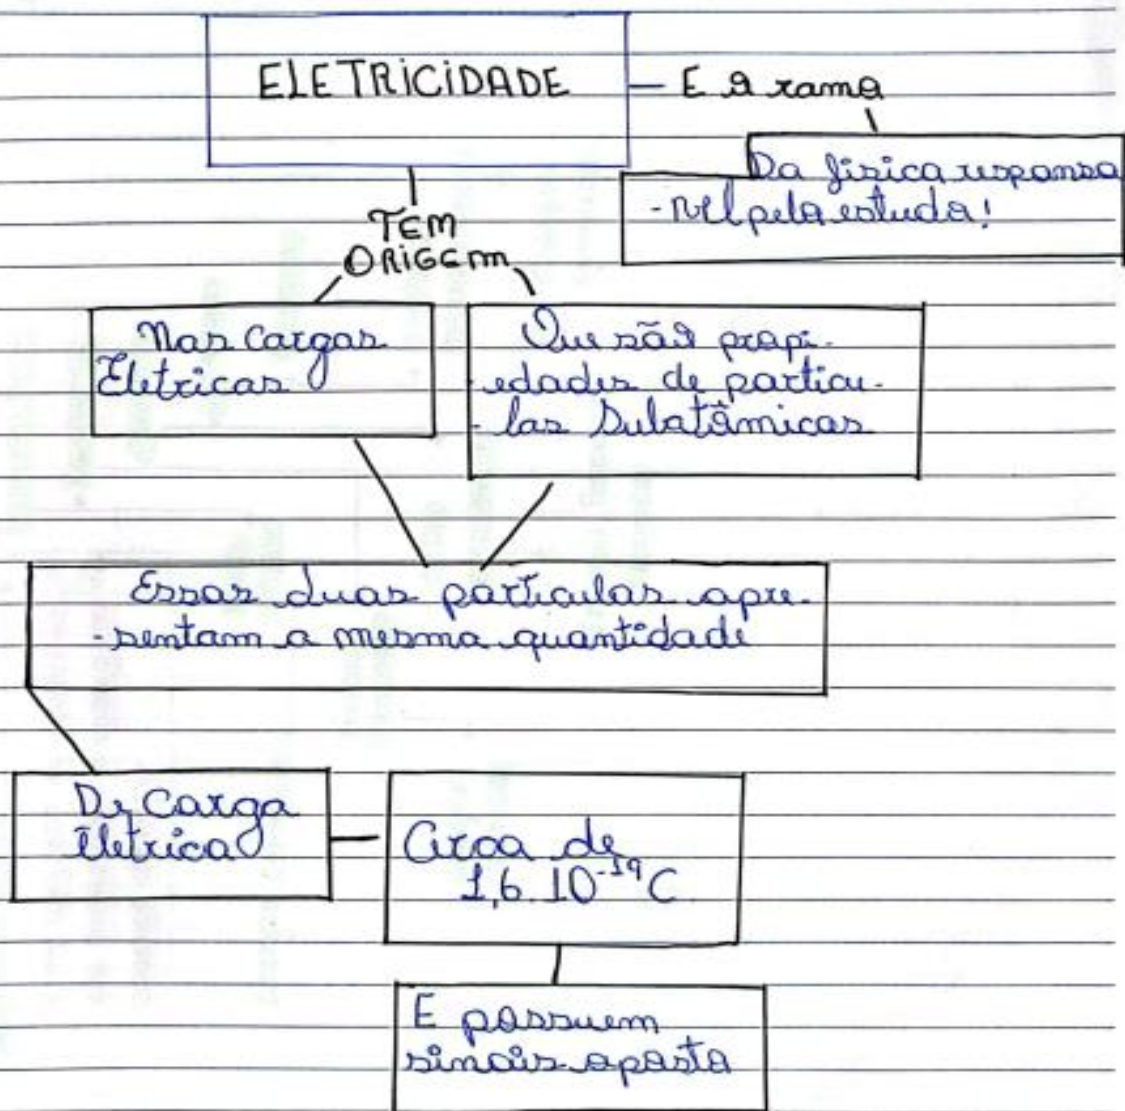 ELETRICIDADE
E o ramo
Da fisica responsa
-vel pelo estudo!
TEM
ORIGEM
Nas Cargas
Eletricas
Que são propi-
edades de particu-
-las Subatômicas
Essas duas particulas apre-
-sentam a mesma quantidade
De Carga
eletrica
Cerca de
1,6.10⁻¹⁹C
E possuem
sinais oposto